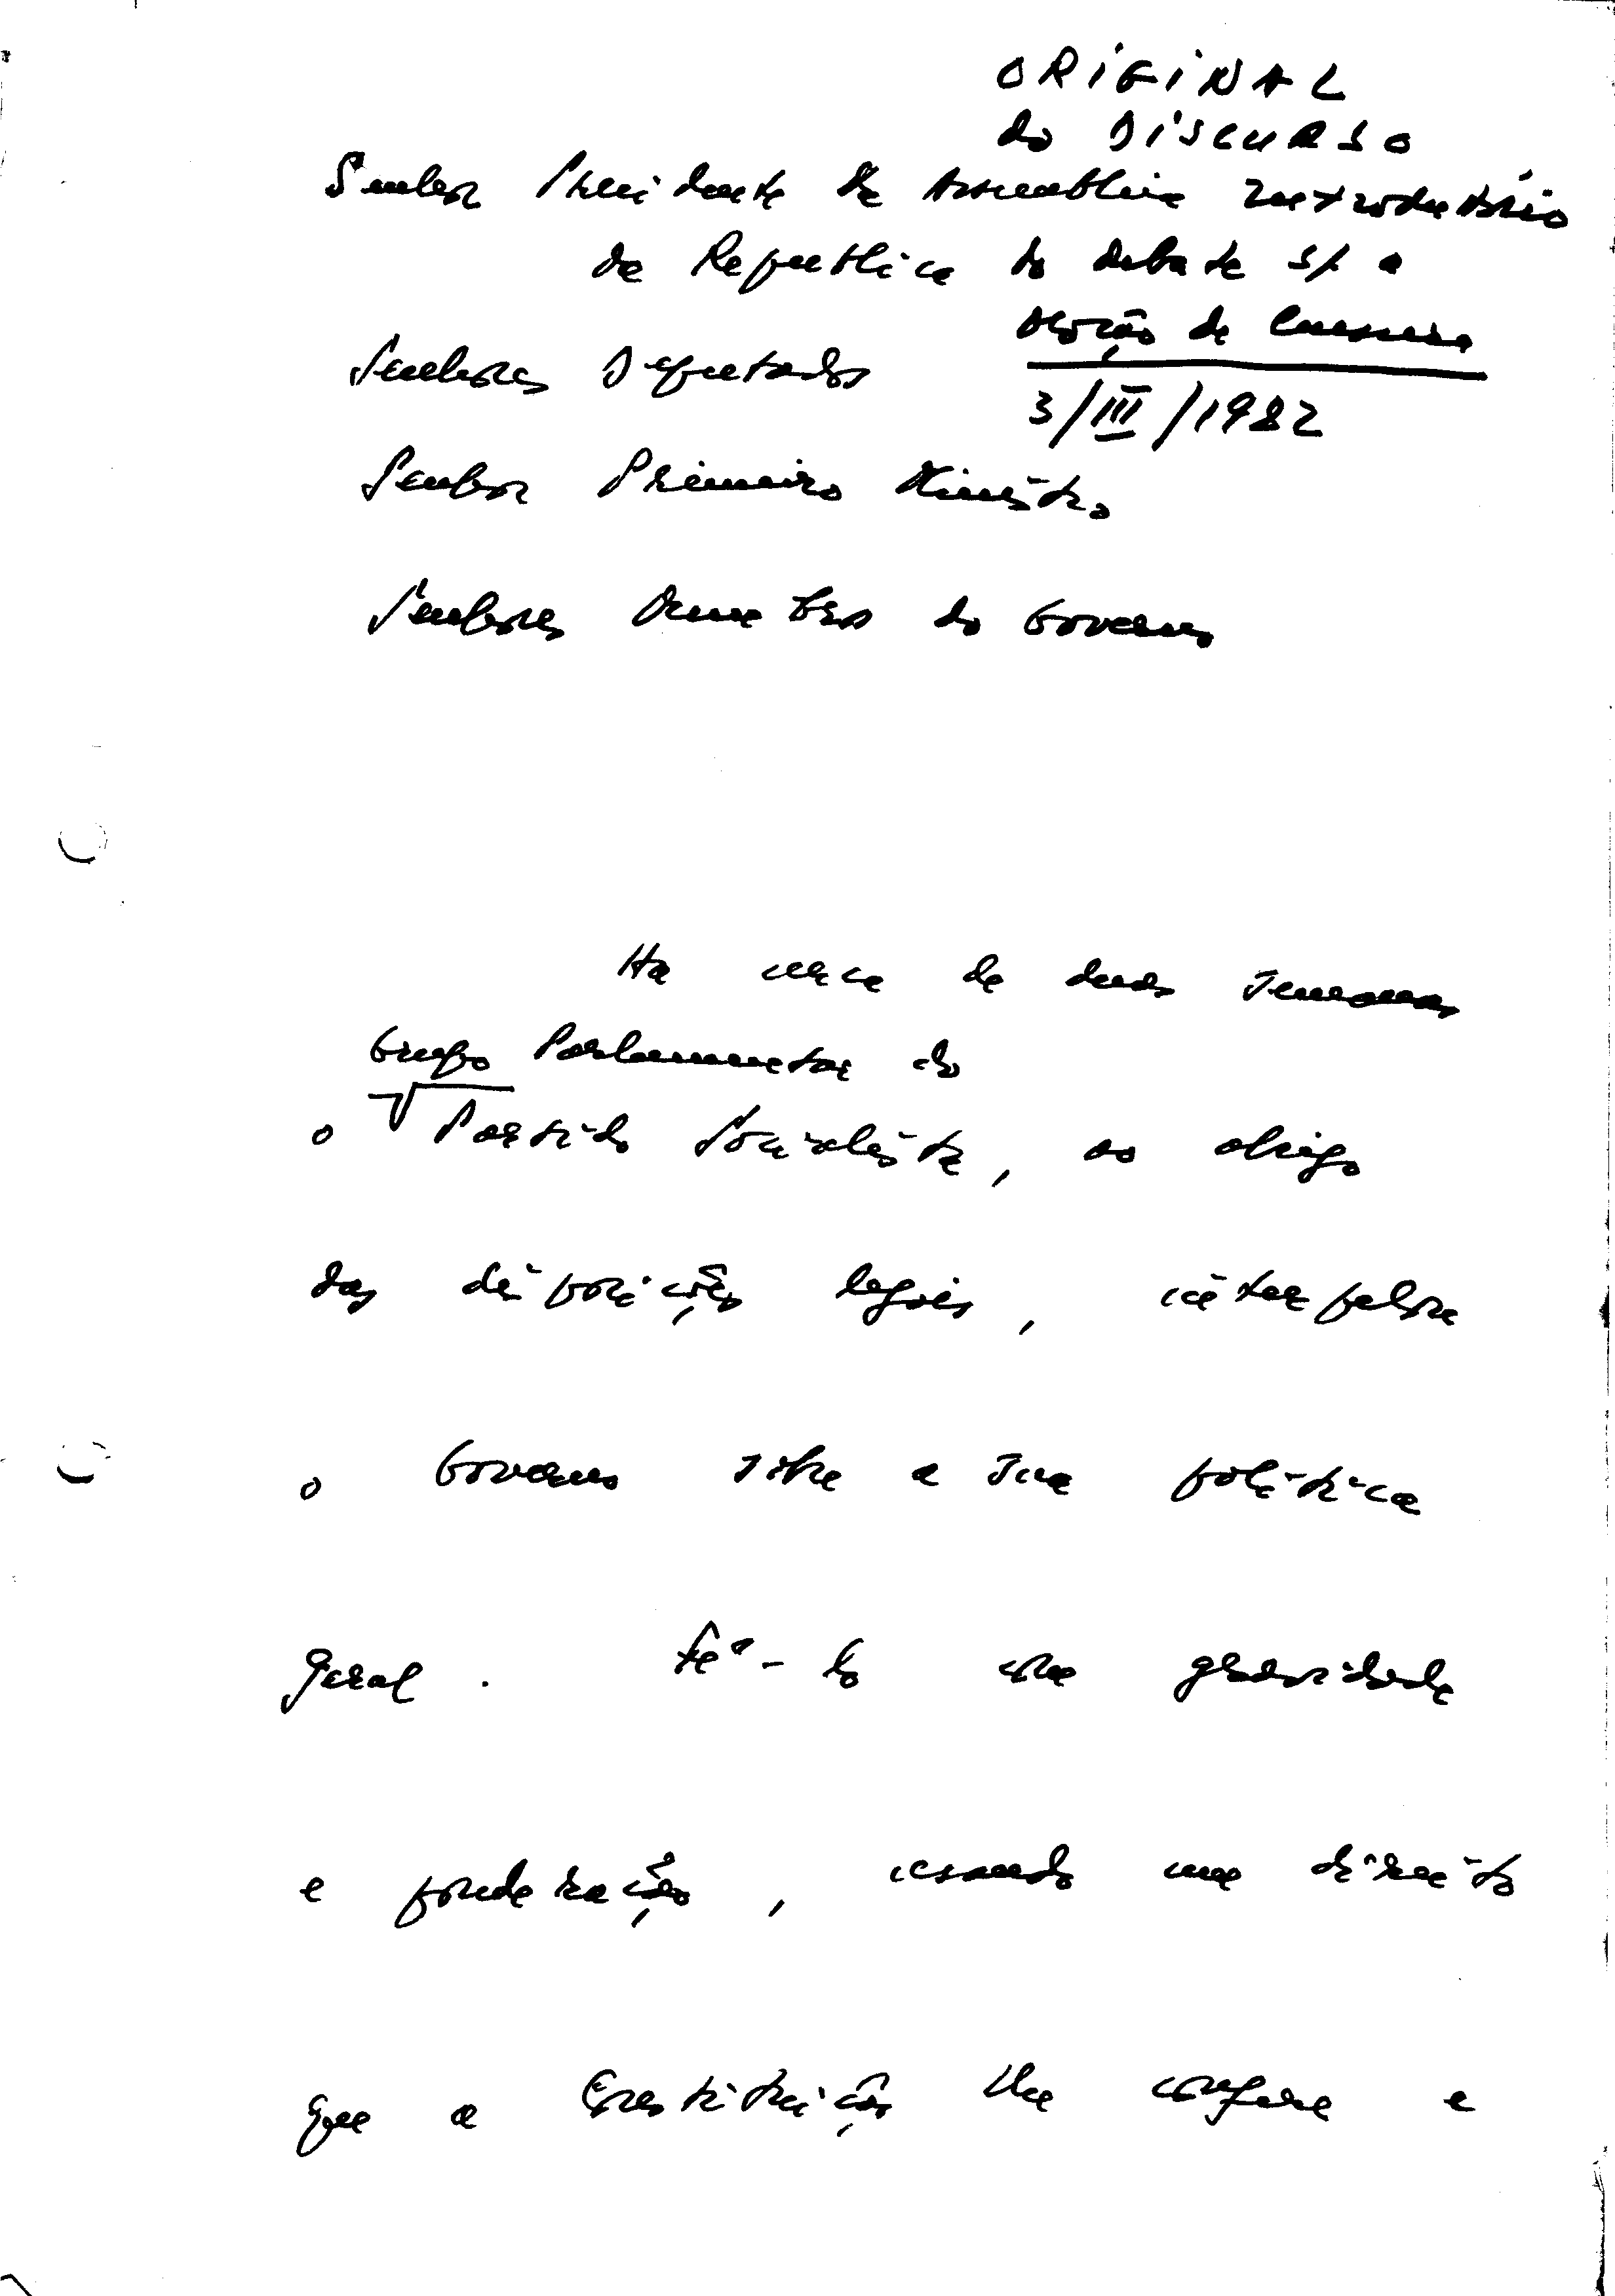 ORIGINAL
do DISCURSO
introdutório
do debate s/ a
Moção de Censura
3/III/1982
Senhor Presidente da Assembleia
da Republica
Senhores Deputados
Senhor Primeiro Ministro
Senhores Membros do Governo
Ha cerca de duas semanas
Grupo Parlamentar do
o Partido Socialista, ao abrigo
das disposições legais, interpelou
o Governo sobre a sua politica
geral. Fê-lo com gravidade
e ponderação, usando um direito
que a Constituição lhe confere e